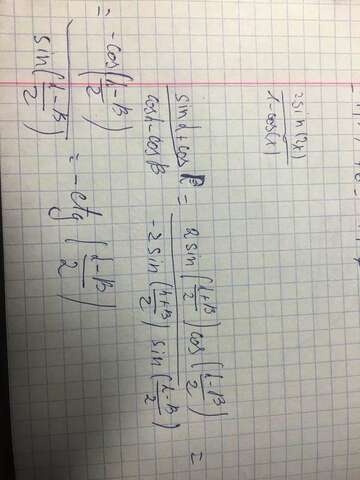 2sin(2x) / 1-cos(x)
sinα+cosβ / cosα-cosβ = 2 sin(α+β / 2) cos(α-β / 2) / -2 sin(α+β / 2) sin(α-β / 2) =
= -cos(α-β / 2) / sin(α-β / 2) = -ctg(α-β / 2)